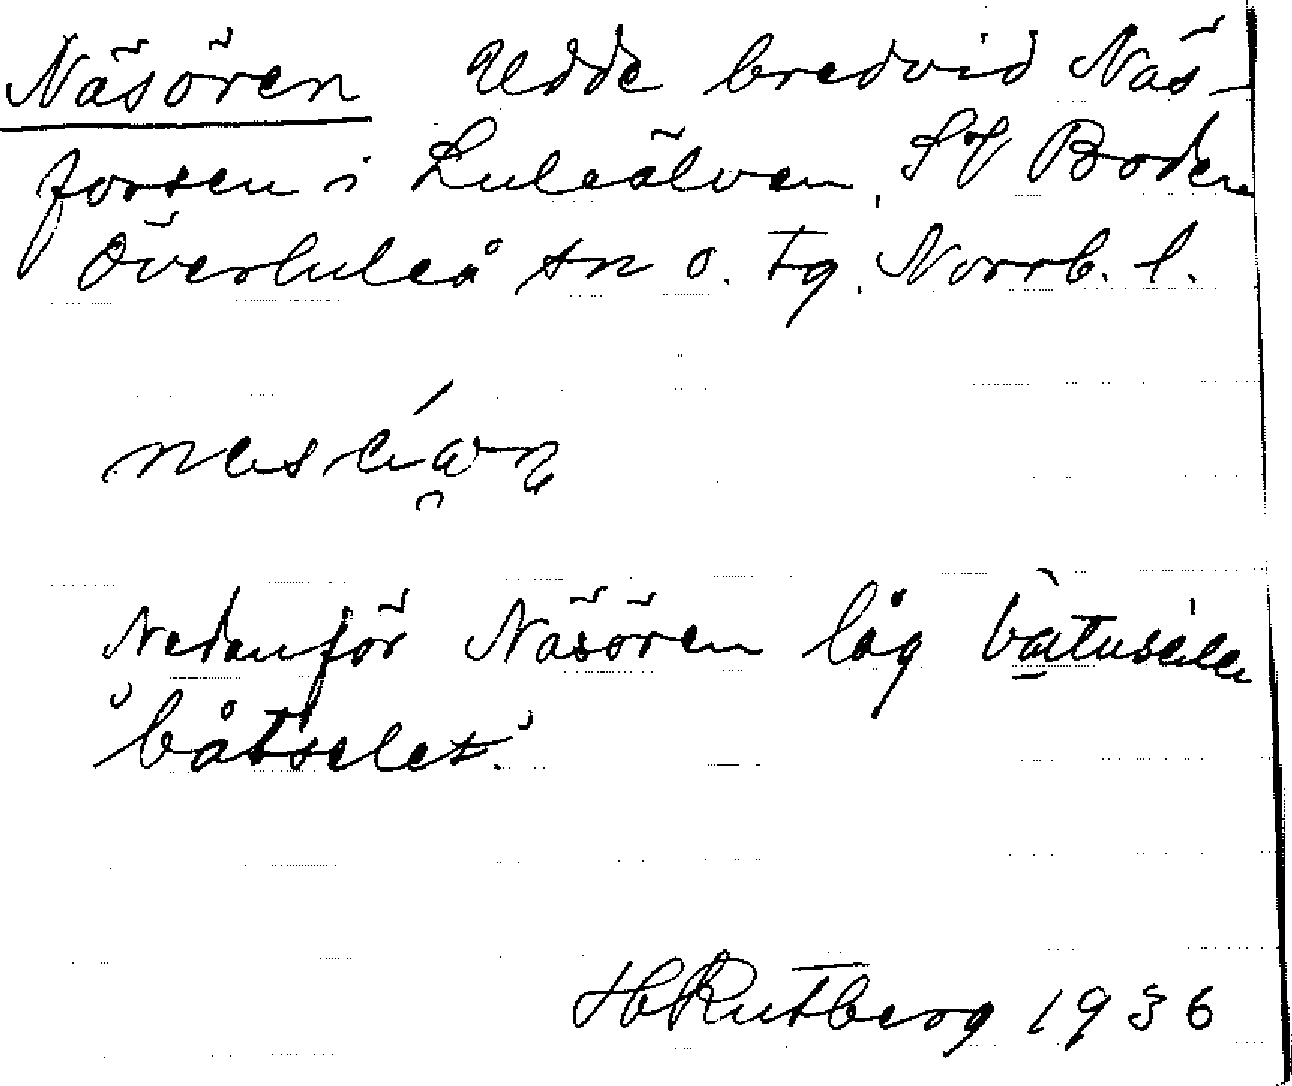 Näsören Udde bredvid Näs-
forsen i Luleälven, SV Boden
Överluleå sn o. tg, Norrb. l.
Nedanför Näsören låg
"båtselet."
H Rutberg 1936